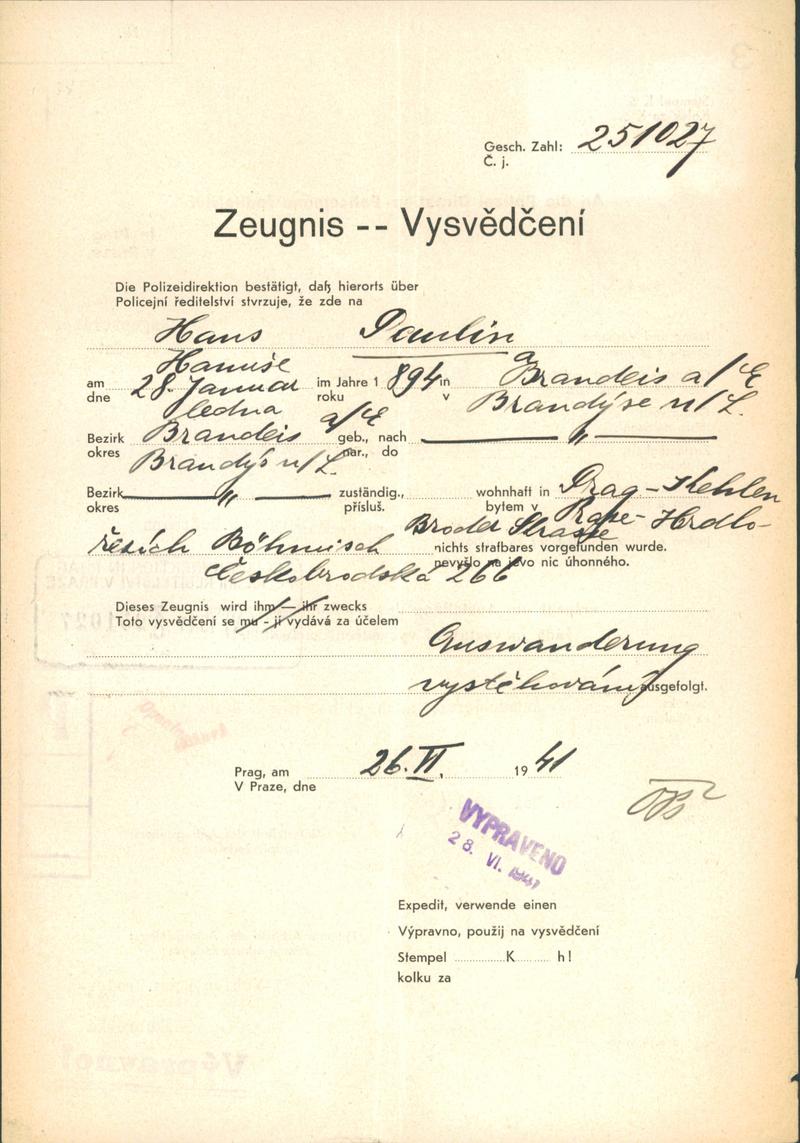 Gesch. Zahl: 251027
Č. j.
Zeugnis -- Vysvědčení
Die Polizeidirektion bestätigt, daß hierorts über
Policejní ředitelství stvrzuje, že zde na
Hans Paulin
Hanuše a
am 28. Januar im Jahre 1 894 in Brandeis a/E
dne ledna roku v Brandýse n/L.
Bezirk Brandeis a/E geb., nach — " —
okres Brandýs n/L. nar., do
Bezirk — " — zuständig., wohnhaft in Prag-Hrdlo-
okres přísluš. bytem v Praze-Hrdlo-
řezích Böhmisch Broder Strasse nichts strafbares vorgefunden wurde.
Českobrodská 266 nevyšlo na jevo nic úhonného.
Dieses Zeugnis wird ihm — ihr zwecks
Toto vysvědčení se mu - jí vydává za účelem
Auswanderung
vystěhování ausgefolgt.
Prag, am 26. VI. 19 41
V Praze, dne
VYPRAVENO
28. VI. 1941
Expedit, verwende einen
Výpravno, použij na vysvědčení
Stempel K h!
kolku za